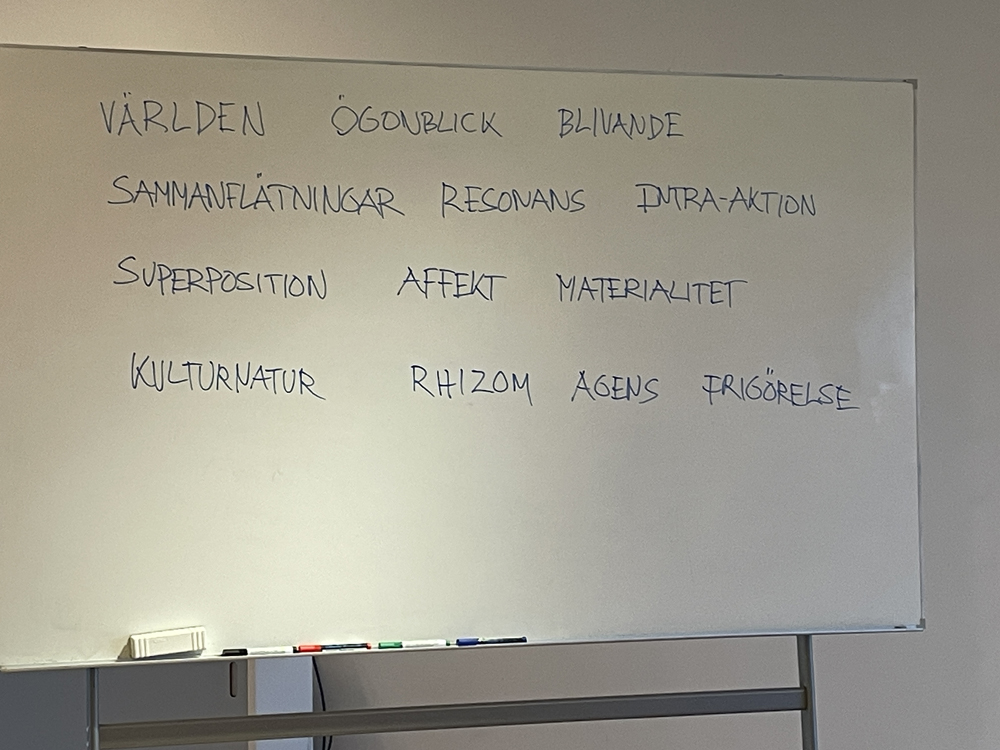 VÄRLDEN ÖGONBLICK BLIVANDE
SAMMANFLÄTNINGAR RESONANS INTRA-AKTION
SUPERPOSITION AFFEKT MATERIALITET
KULTURNATUR RHIZOM AGENS FRIGÖRELSE